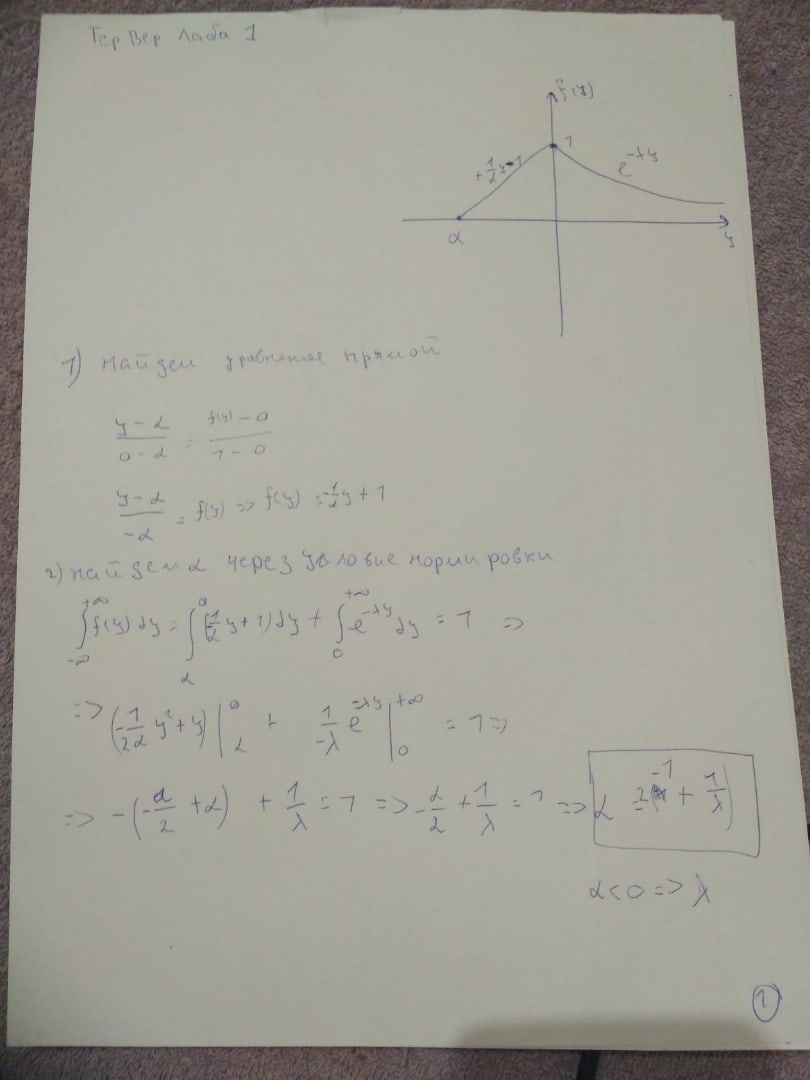 Тер Вер Лаба 1
f(y)
1
e^{-λy}
α
y
1) Найдем уравнение прямой
(y - α)/(0 - α) = (f(y) - 0)/(1 - 0)
(y - α)/(-α) = f(y) => f(y) = -1/α y + 1
2) Найдем α через условие нормировки
∫_{-∞}^{+∞} f(y) dy = ∫_{α}^{0} (-1/α y + 1) dy + ∫_{0}^{+∞} e^{-λy} dy = 1 =>
=> (-1/(2α) y² + y) |_{α}^{0} + 1/(-λ) e^{-λy} |_{0}^{+∞} = 1 =>
=> -(-α/2 + α) + 1/λ = 1 => -α/2 + 1/λ = 1 => α = 2(-1 + 1/λ)
α < 0 => λ
1